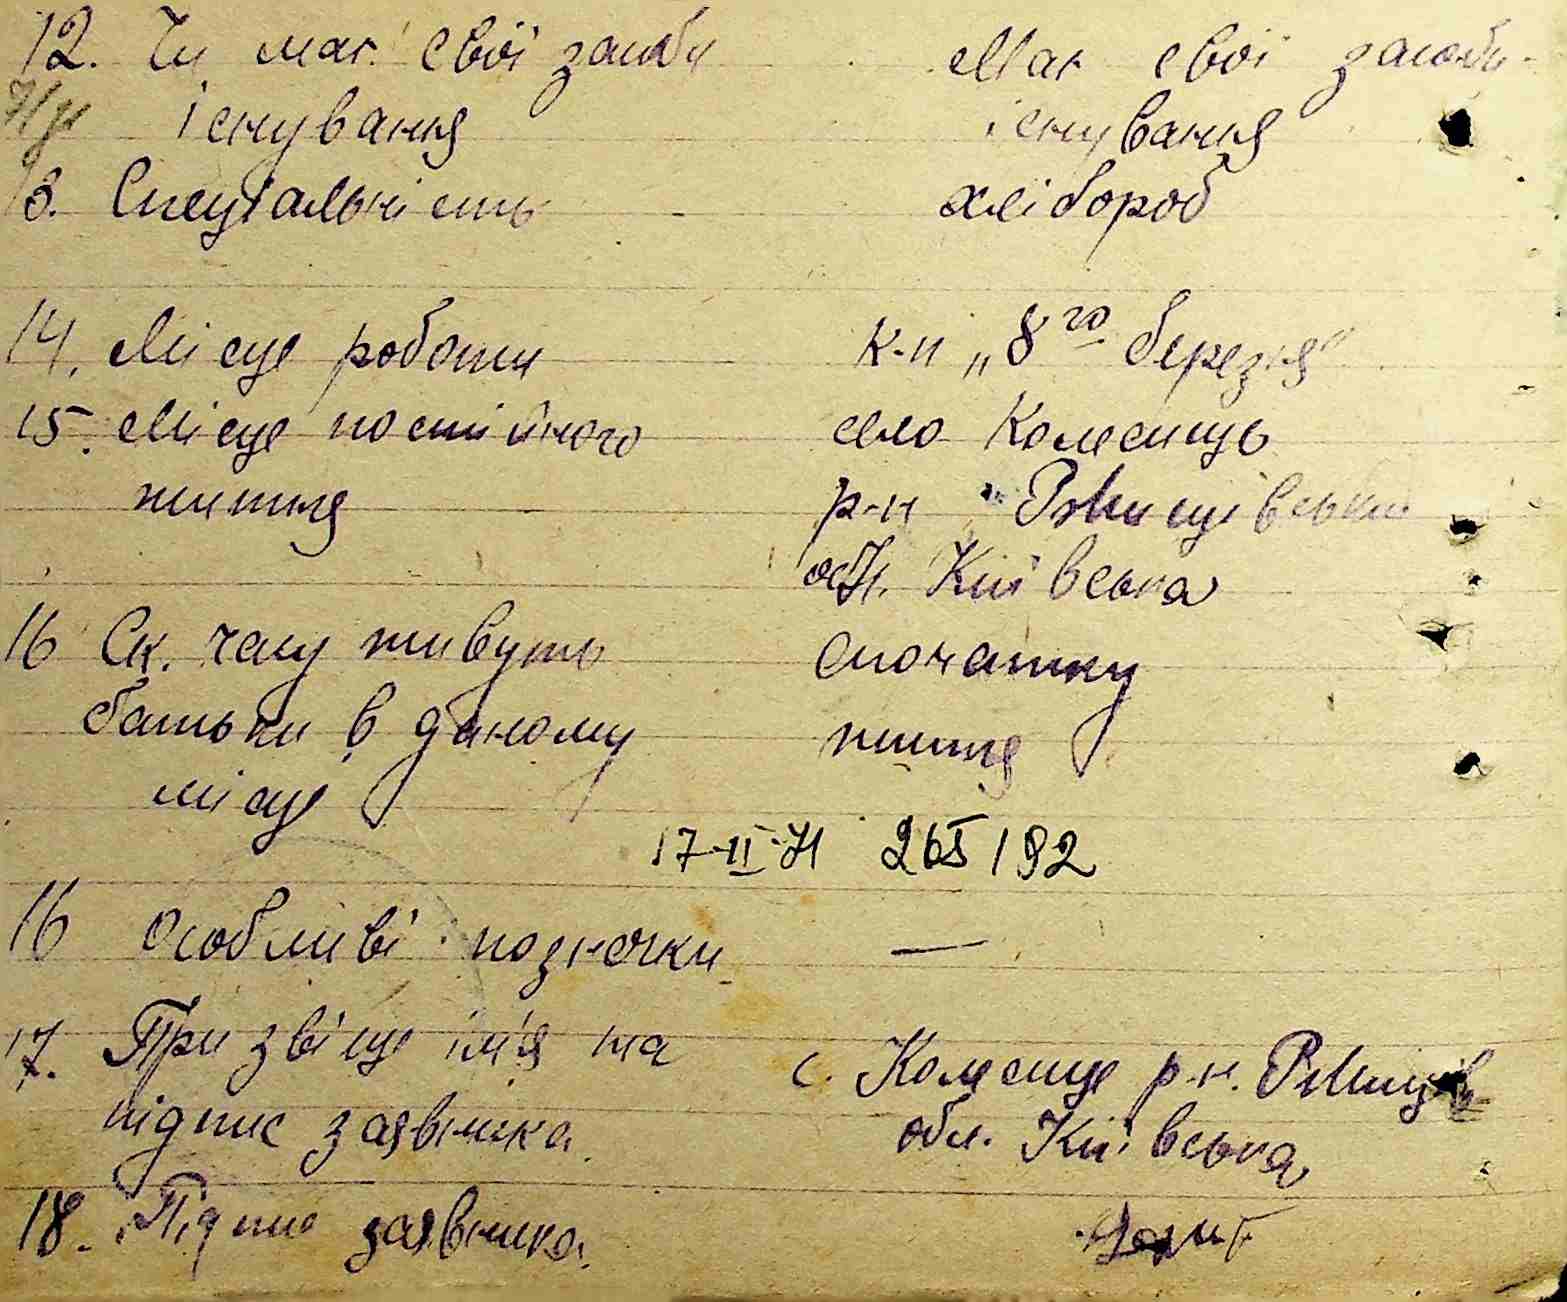 12. Чи має свої засоби Має свої засоби
існування існування
13. Спеціальність хлібороб
14. Місце роботи к-п „8го березня"
15. Місце постійного село Колесище
життя р-н Ржищівський
обл. Київська
16 Ск. часу живуть спочатку
батьки в даному життя
місце
17-II-71 265/192
16 Особливі позначки —
17. Призвіще ім'я та с. Колесище р-н. Ржищів
підпис заявника обл. Київська
18. Підпис заявника.